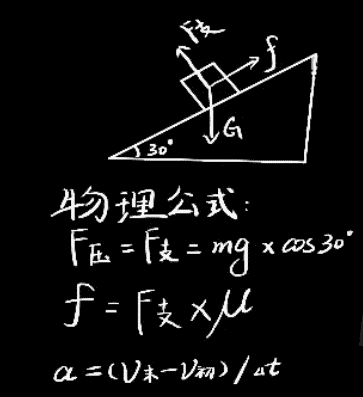 F支
f
G
30°
物理公式:
F压=F支=mg×cos30°
f=F支×μ
a=(V末-V初)/Δt